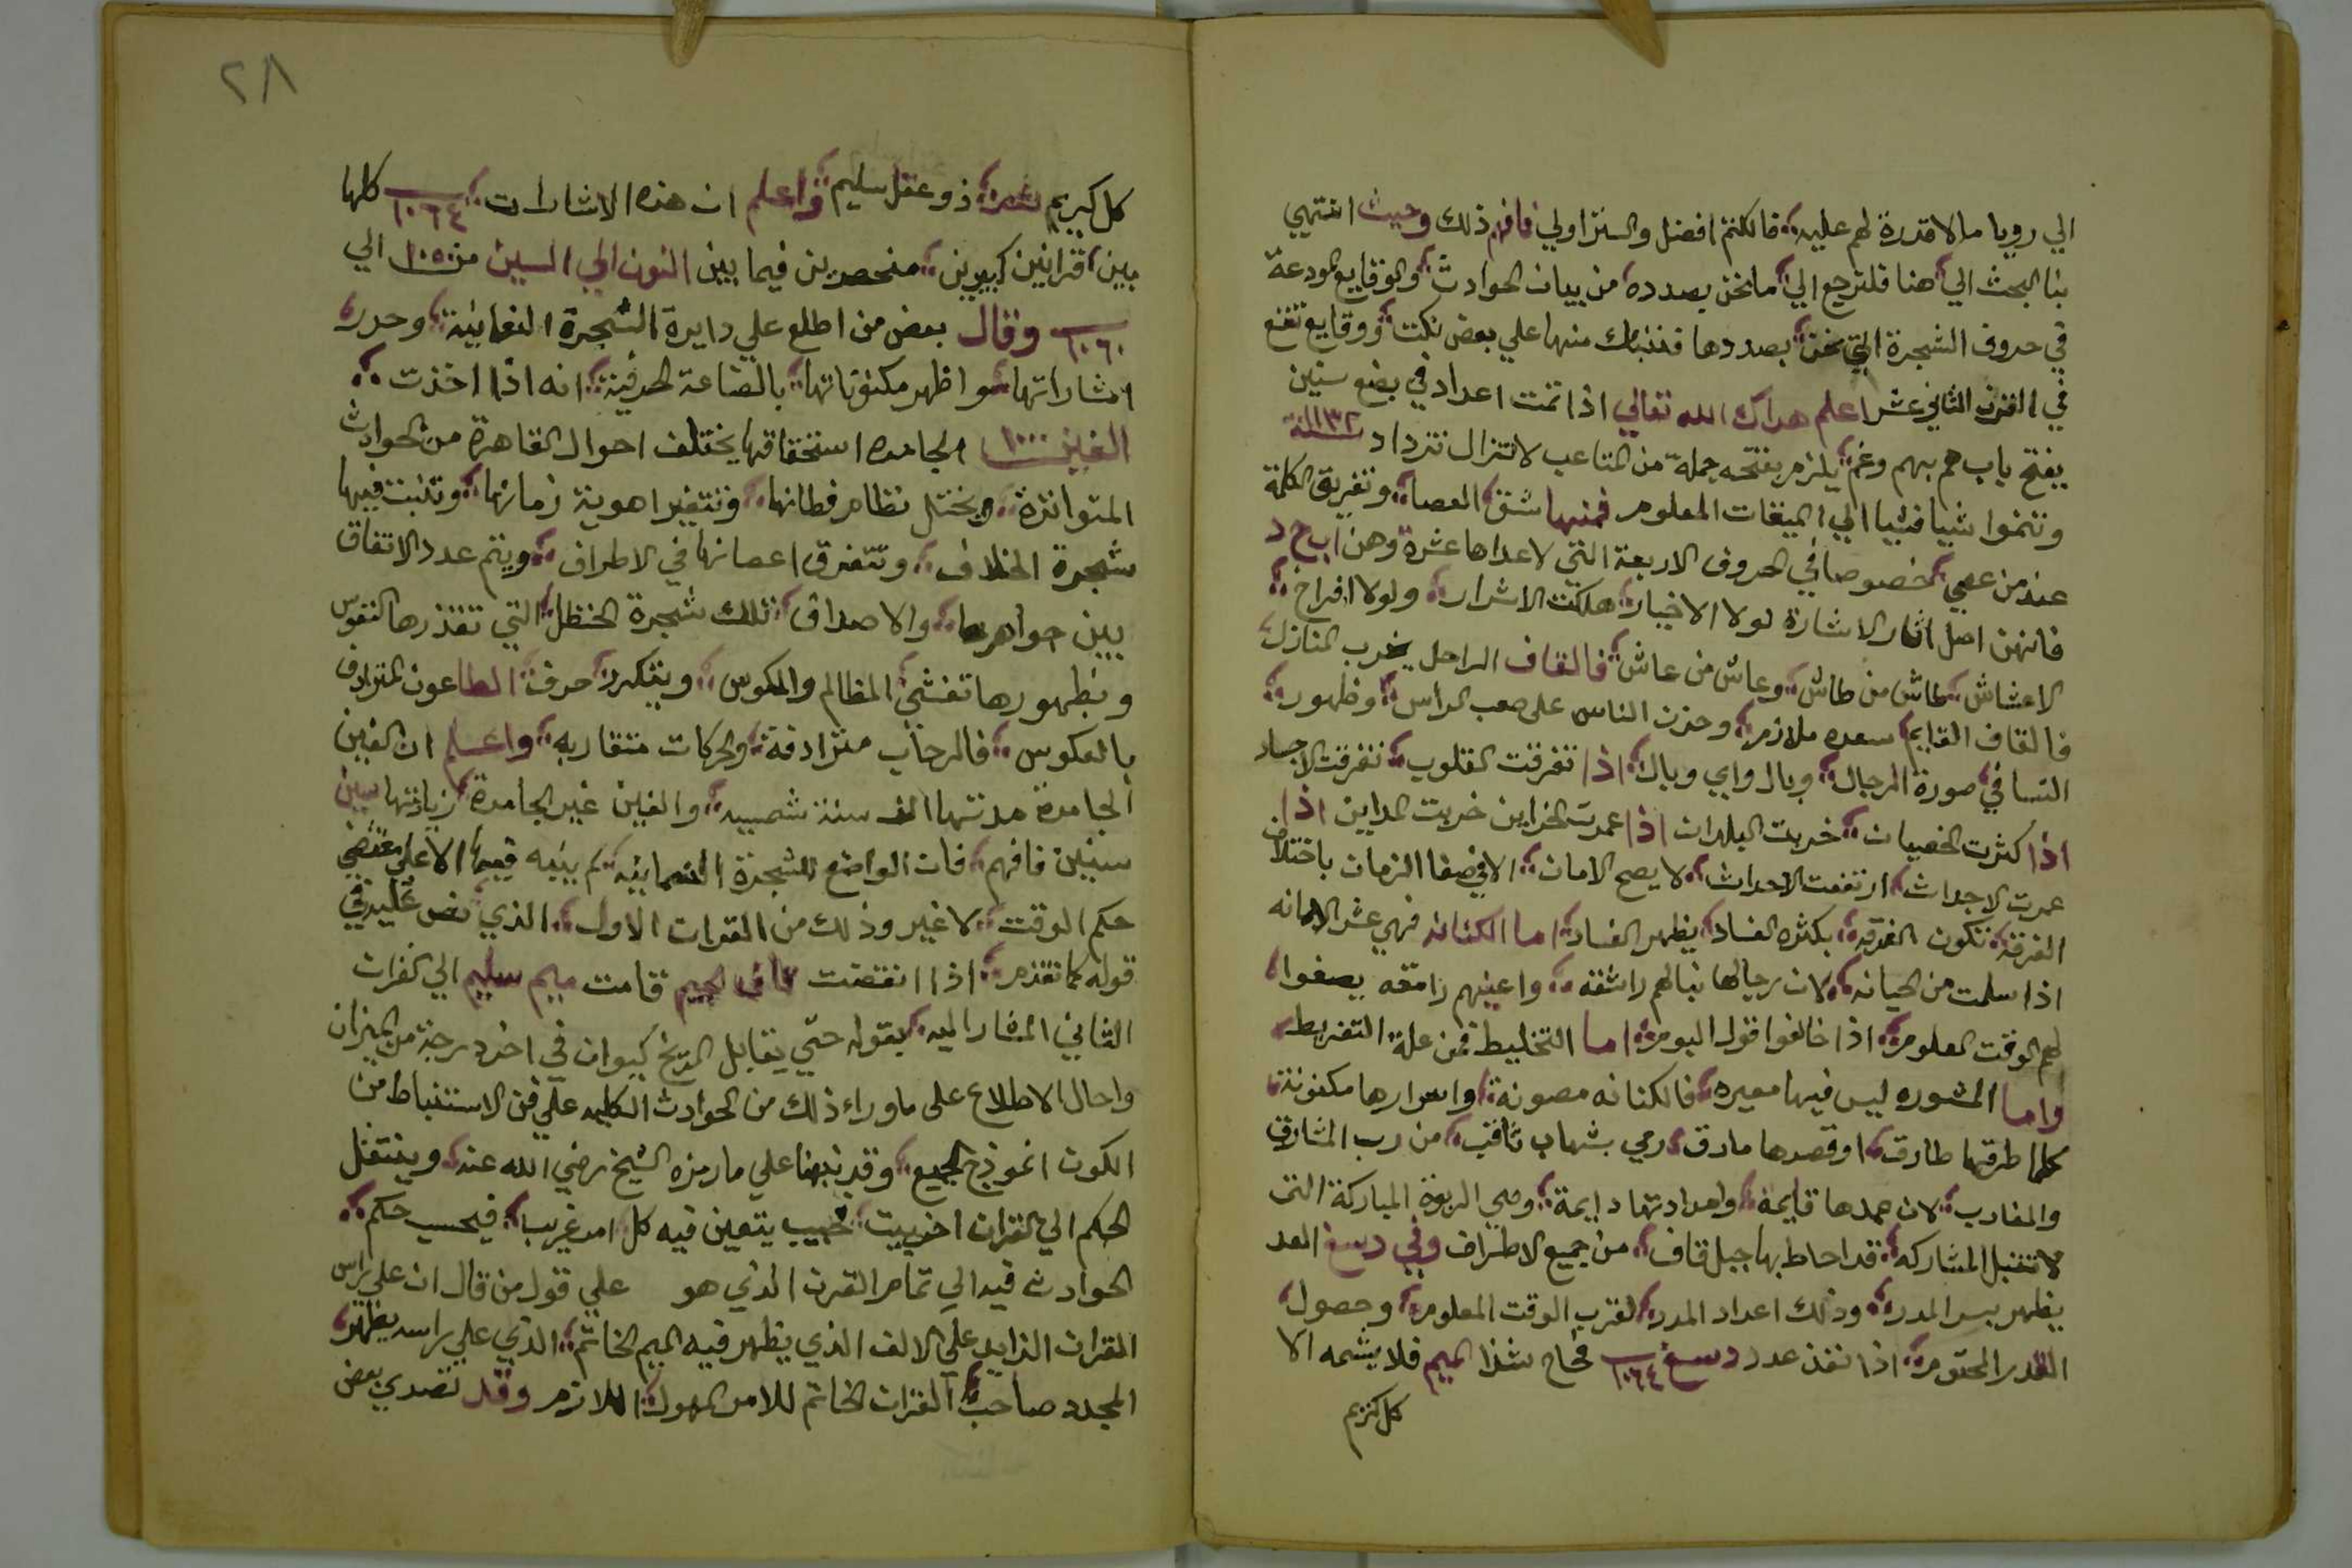 الي رويا ما لا قدرة لهم عليه فالكتم افضل والستر اولي فافهم ذلك وحيث انتهي
بنا البحث الي هنا فلترجع الي ما نحن بصدده من بيان الحوادث والوقايع المودعة
في حروف الشجرة التي نحن بصددها فننبك منها علي بعض نكت ووقايع تقع
في القرن الثاني عشر اعلم هداك الله تعالي اذا تمت اعداد في بضع سنين
يفتح باب هم بهم وغم يلزم بفتحه جملة من المتاعب لا تزال تزداد
وتنموا شيا فشيا الي الميقات المعلوم فمنها شق العصا وتفريق الكلمة
عند من عمي خصوصا في الحروف الاربعة التي لاعداها عشرة وهن اب ج د
فانهن اصل اثار الاشارة لولا الاخيار هلكت الاشرار ولولا افراخ
الاعشاش طاش من طاش وعاش من عاش فالقاف الراحل يخرب المنازل
فالقاف القايم سعده ملازم وحزن الناس علي صعب المراس وظهور
النسا في صورة الرجال وبال واي وبال اذا تفرقت القلوب تفرقت الاجساد
اذا كثرت الخصيان خربت البلدان اذا عمرت الخزاين خربت المداين اذا
عمرت الاجداث ارتفعت الاحداث لا يصح الامان الا في صفا الزمان باختلاف
الفرقة تكون الفرقه بكثره الفساد يظهر الفساد اما الكنانه فهي عش الامانه
اذا سلمت من الخيانه لان رجالها نبالهم راشقه واعينهم رامقه يصغوا
لهم الوقت المعلوم اذا خالفوا قول البوم اما التخليط فمن علة التفريط
واما المشوره ليس فيها معيره فالكنانه مصونة واسرارها مكنونة
كلما طرقها طارق او قصدها مارق رمي بشهاب ثاقب من رب المشارق
والمغارب لان عمدها قايمة وامدادتها دايمة وهي الربوة المباركة التي
لا تقبل المشاركه قد احاط بها جبل قاف من جميع الاطراف وفي دسغ العد
يظهر سر المدد وذلك اعداد المدد لقرب الوقت المعلوم وحصول
القدر المحتوم اذا نفذ عدد دسغ ١٠٦٤ فاح شذا الميم فلا يشمه الا
كل كريم
٢٨
كل كريم ذو عقل سليم واعلم ان هذه الاشارات ١٠٦٤ كلها
بين قرانين كبيرين منحصرين فيما بين النون الي السين من ١٠٥٠ الي
١٠٦٠ وقال بعض من اطلع علي دايرة الشجرة النعمانية وحدد
اشاراتها واظهر مكنوناتها بالصناعة الحرفية انه اذا اخذت
الغين ١٠٠٠ الجامده استحقاقها يختلف احوال القاهرة من الحوادث
المتواترة ويختل نظام قطانها وتتغير اهوية زمانها وتنبت فيها
شجرة الخلاف وتتفرق اغصانها في الاطراف ويتم عدد الاتفاق
بين جواهرها والاصداف تلك شجرة الحنظل التي تقذرها النفوس
وبظهورها تفشي المظالم والمكوس ويتكرر حرف الطاعون المترادف
بالعكوس فالمرحاب مترادفة والحركات متقاربه واعلم ان الغين
الجامدة مدتها الف سنة شمسيه والغين غير الجامدة زيادتها سبين
سنين فافهم فان الواضع للشجرة النعمانيه لم يبنيه فيها الا علي مقتضي
حكم الوقت لا غير وذلك من القران الاول الذي نص عليه في
قوله كما تقدم اذا انقضت قاف الجيم قامت ميم سليم الي القران
الثاني المشار اليه بقوله حتي يقابل المريخ كيوان في اخر درجة من الميزان
واحال الاطلاع علي ما وراء ذلك من الحوادث الكليه علي فن الاستنباط من
الكون انموذج الجميع وقد نبهنا علي ما رمزه الشيخ رضي الله عنه وينتقل
الحكم الي القران اخر بيت يتعين فيه كل امر غريب فيحسب حكم
الحوادث فيه الي تمام القرن الذي هو علي قول من قال ان علي راس
القران الزايد علي الالف الذي يظهر فيه الميم الخاتم الذي علي راسه يظهر
المجدد صاحب القران الخاتم للامر المهول اللازم وقد تصدي بعض